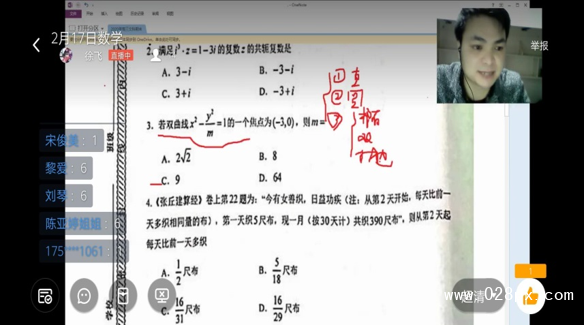 2月17日数学
徐飞 直播中
举报
2. 满足i³·z=1-3i的复数z的共轭复数是
A. 3-i B. -3-i
C. 3+i D. -3+i
① 直
② 圆
③
3. 若双曲线x²-y²/m=1的一个焦点为(-3,0), 则m=
A. 2√2 B. 8
C. 9 D. 64
4.《张丘建算经》卷上第22题为:“今有女善织, 日益功疾 (注: 从第2天开始, 每天比前一
天多织相同量的布), 第一天织5尺布, 现一月 (按30天计) 共织390尺布”, 则从第2天起
每天比前一天多织
A. 1/2尺布 B. 5/18尺布
C. 16/31尺布 D. 16/29尺布
班级
学校
宋俊美: 1
黎爱: 6
刘琴: 6
陈亚婷姐姐: 6
175****1061: 1
超清
1